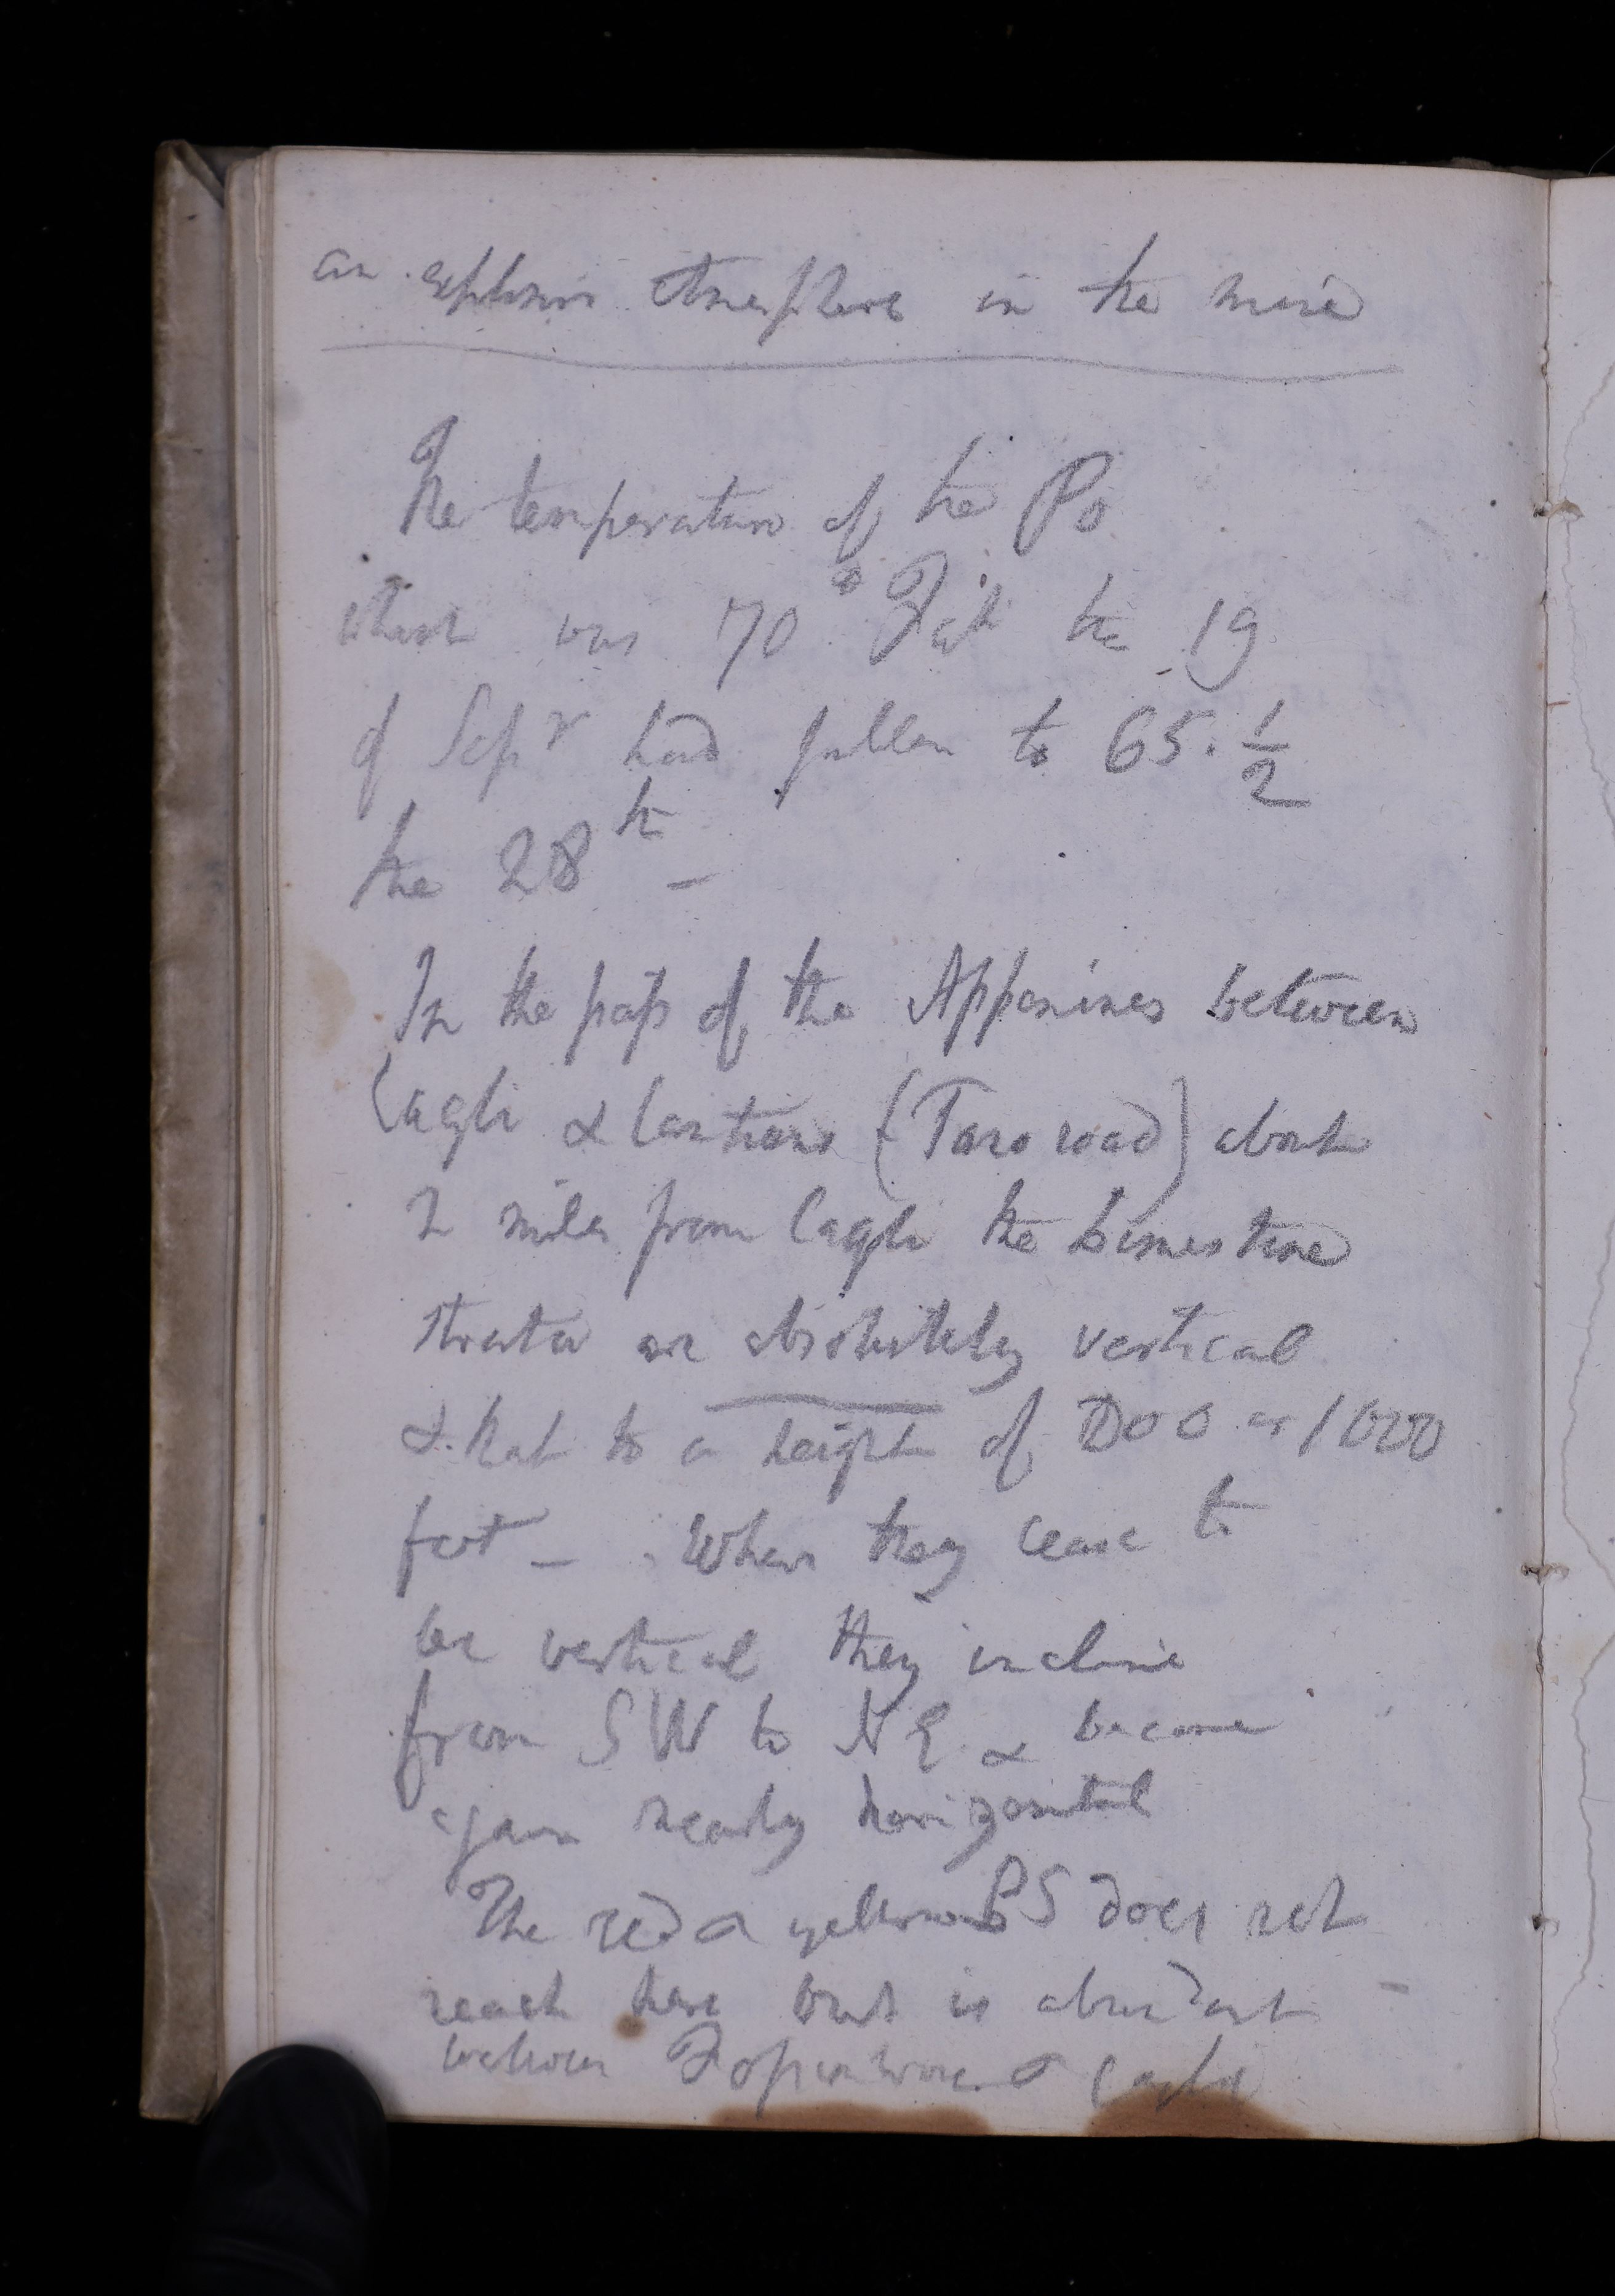 an explosive atmosphere in the mine
The temperature of the Po
which was 70° Fah the 19
of Sepr had fallen to 65. 1/2
the 28th –
In the pass of the Appenines between
Cagli & Cantiano (Taro road) about
2 miles from Cagli the limestone
strata are absolutely vertical
& that to a height of 800 or 1000
feet – When they cease to
be vertical they incline
from SW to NE & become
again nearly horizontal
The red & yellow S does not
reach here but is abundant –
between & Cagli